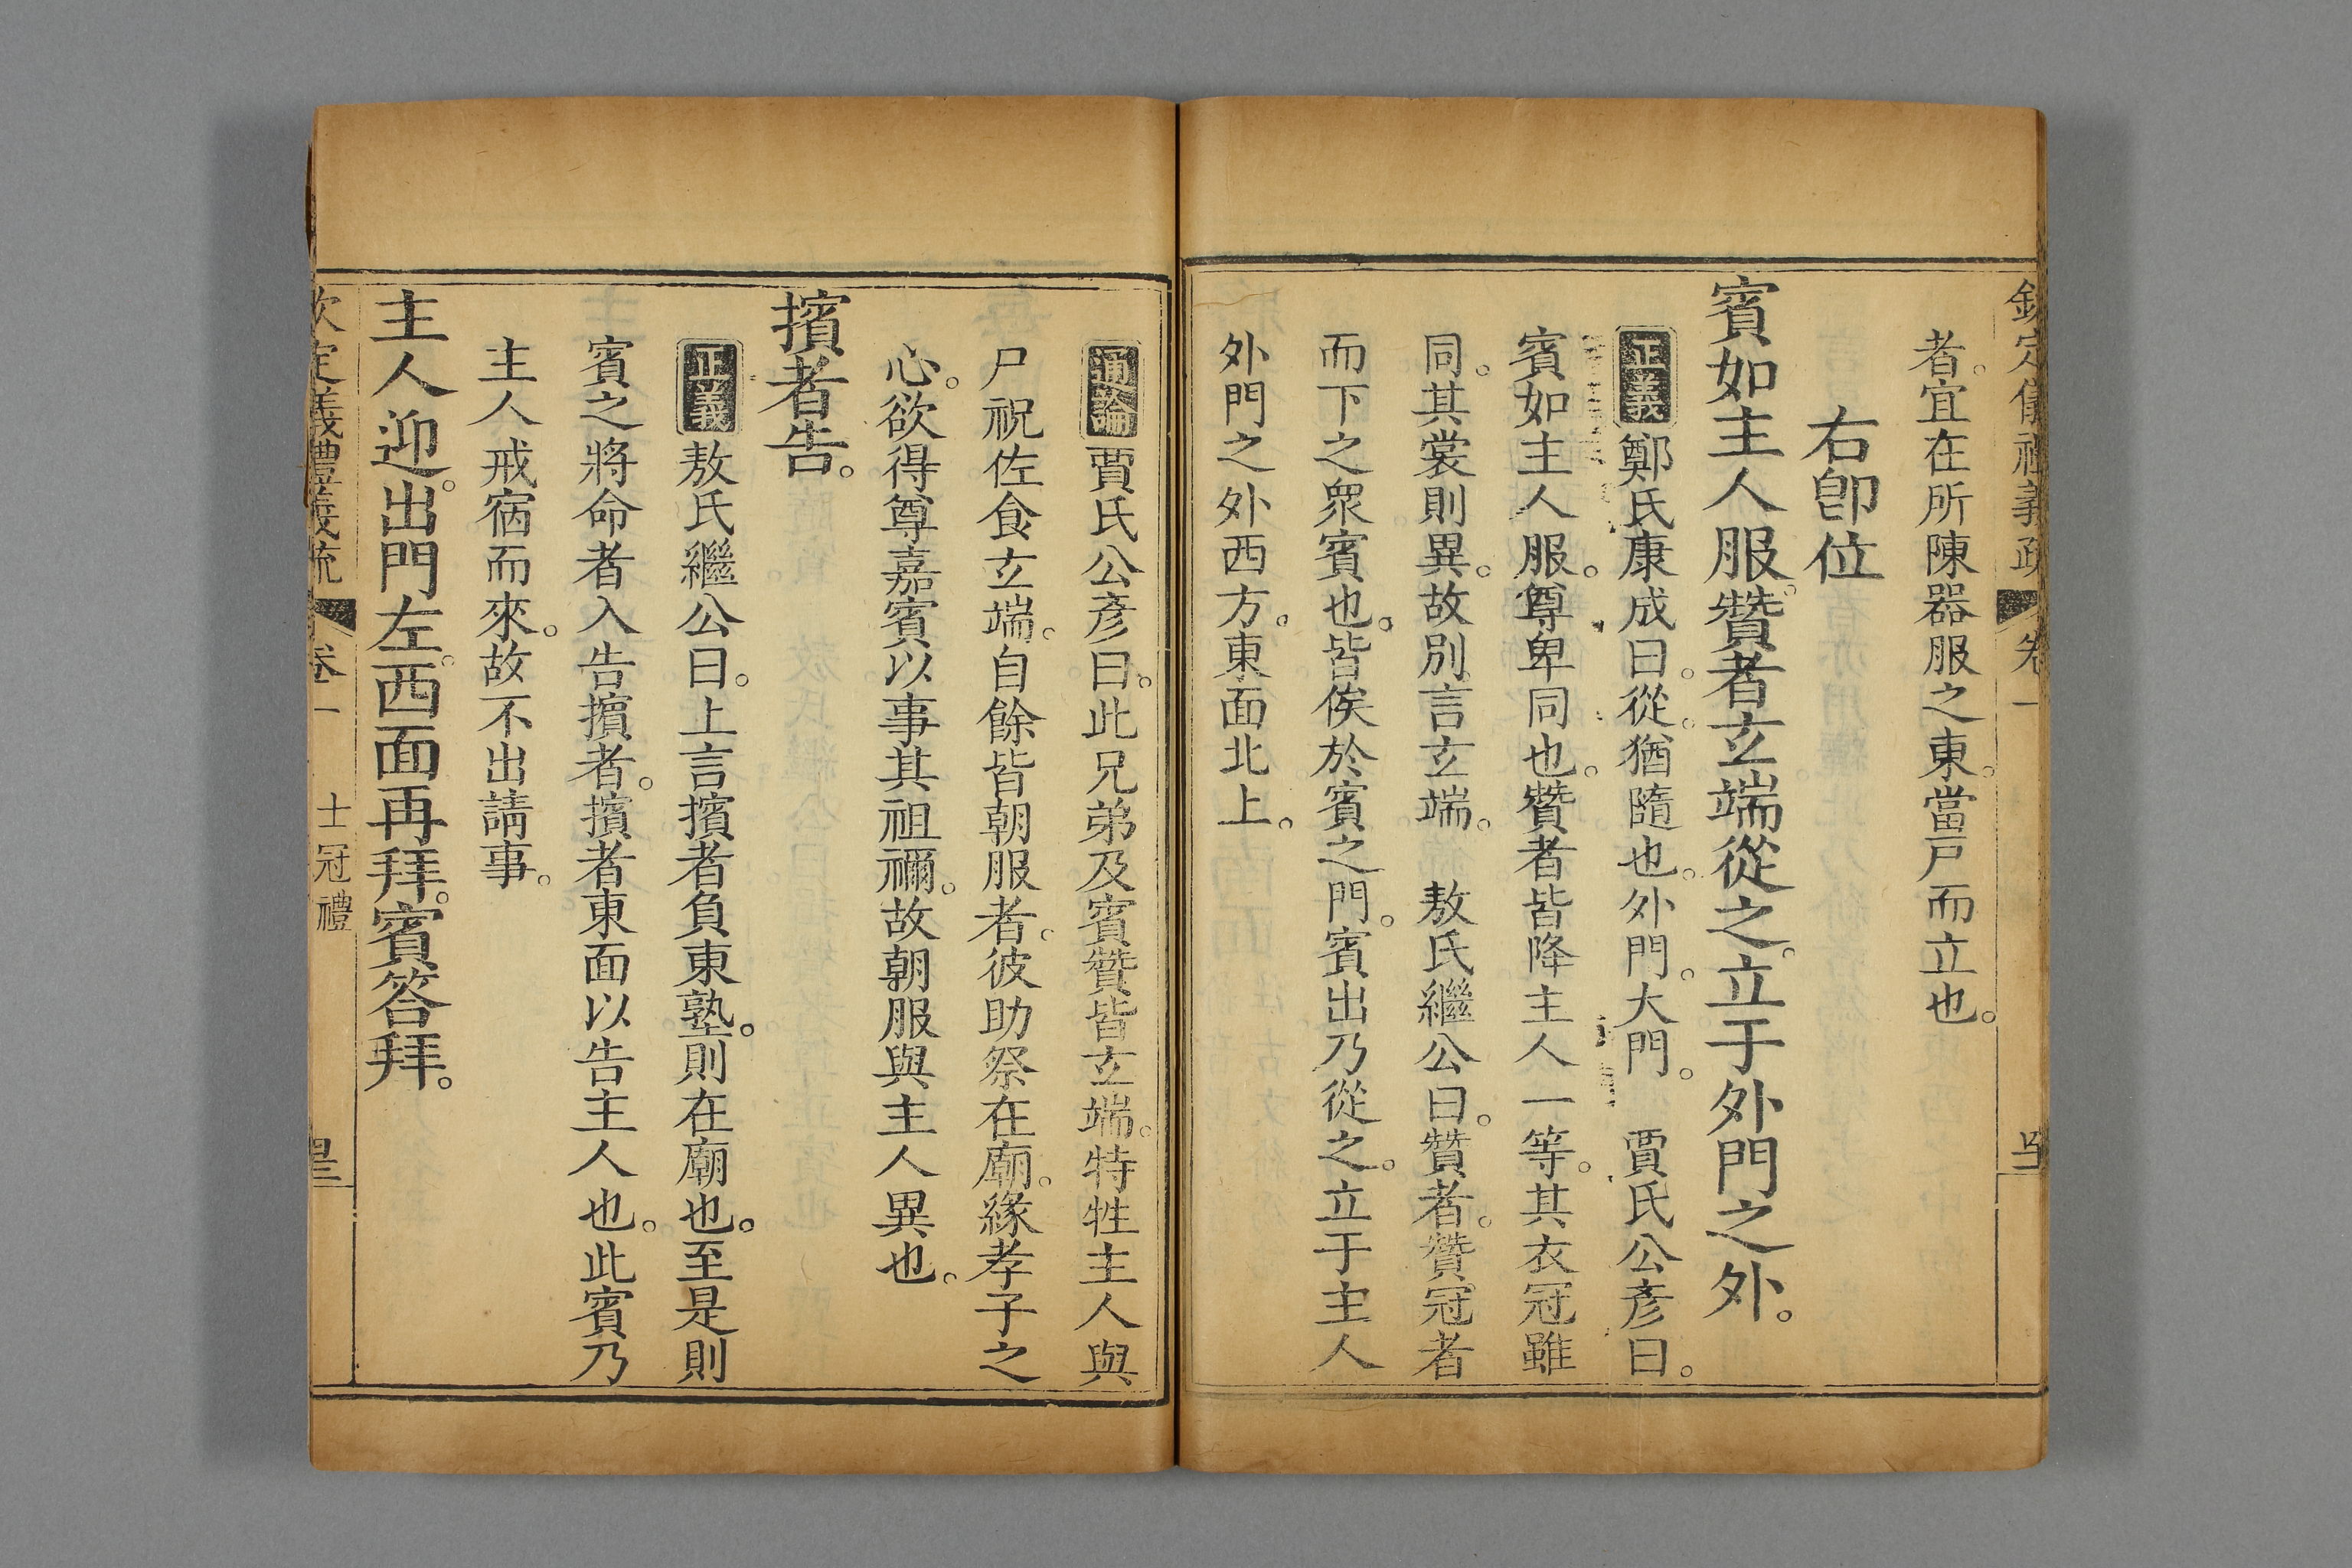 欽定儀禮義疏 卷一
者。宜在所陳器服之東。當戶而立也。
右卽位
賓如主人服。贊者玄端從之。立于外門之外。
正義鄭氏康成曰。從。猶隨也。外門。大門。 賈氏公彥曰。
賓如主人服。尊卑同也。贊者皆降主人一等。其衣冠雖
同。其裳則異。故別言玄端。 敖氏繼公曰。贊者。贊冠者
而下之眾賓也。皆俟於賓之門。賓出乃從之。立于主人
外門之外西方。東面北上。
通論賈氏公彥曰。此兄弟及賓贊皆玄端。特牲主人與
尸祝佐食玄端。自餘皆朝服者。彼助祭在廟。緣孝子之
心。欲得尊嘉賓以事其祖禰。故朝服與主人異也。
擯者告。
正義敖氏繼公曰。上言擯者負東塾。則在廟也。至是則
賓之將命者入告擯者。擯者東面以告主人也。此賓乃
主人戒宿而來。故不出請事。
主人迎。出門左。西面再拜。賓答拜。
欽定儀禮義疏 卷一 士冠禮